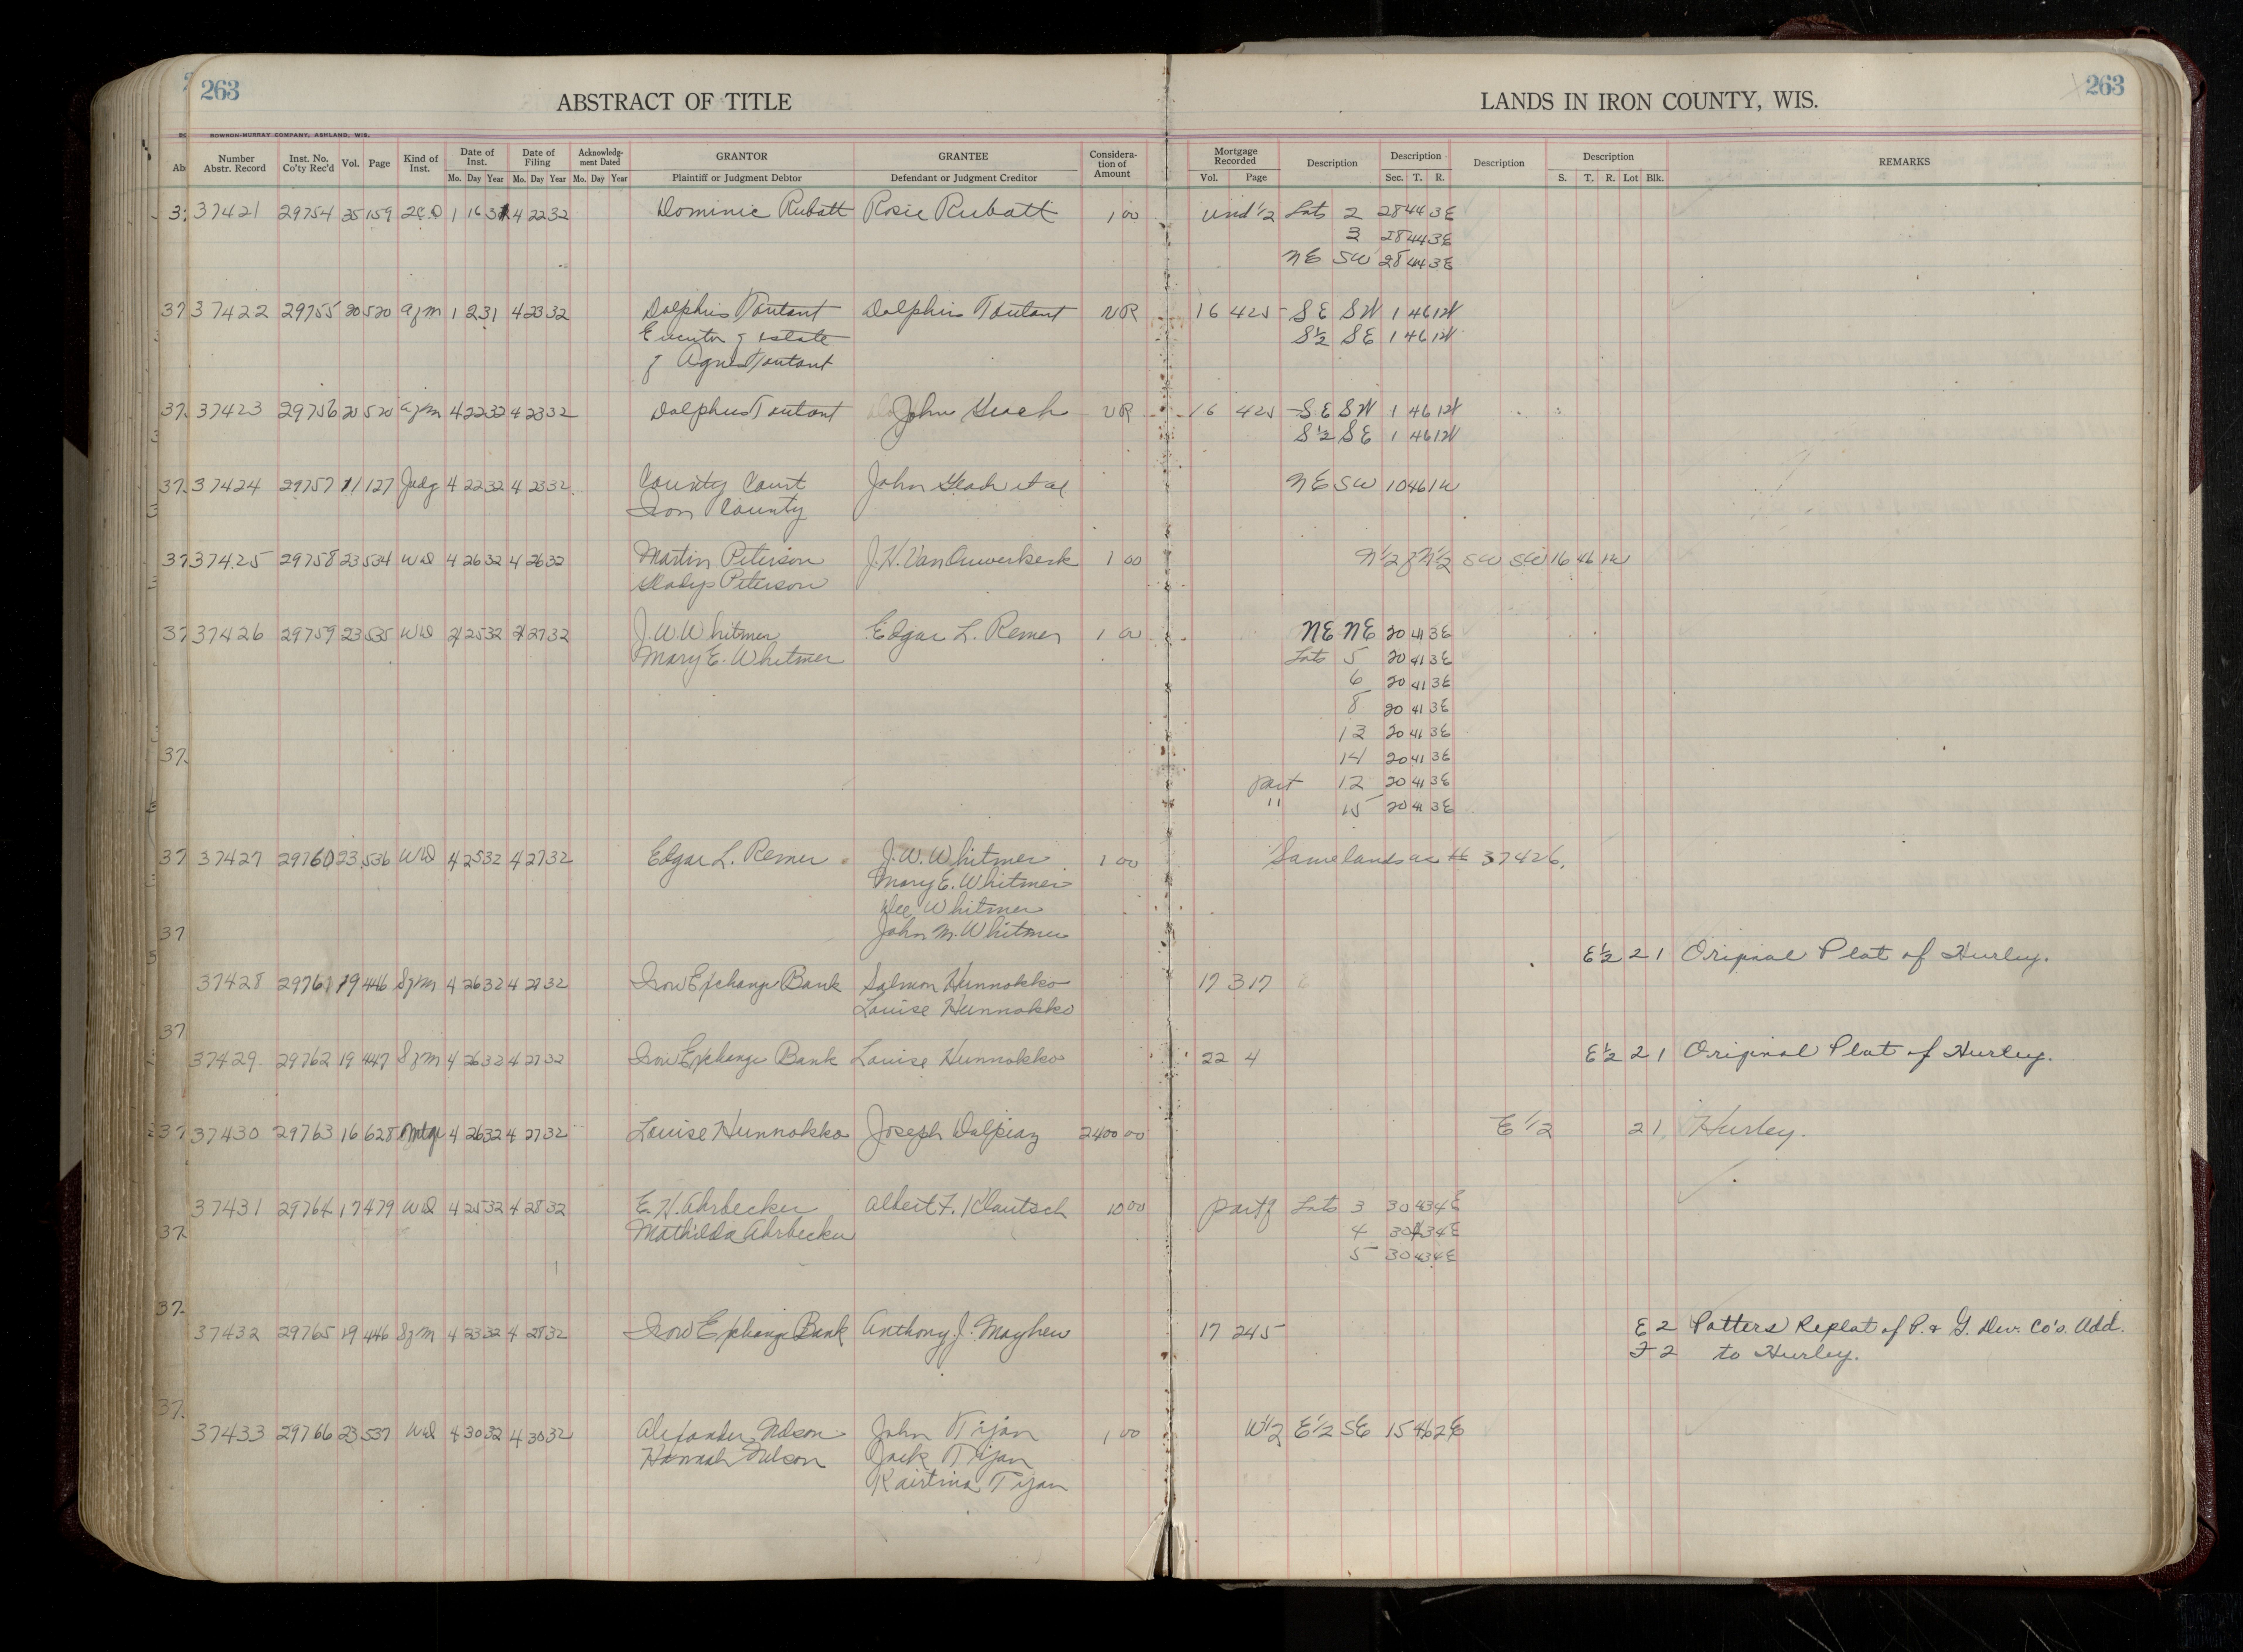 263
ABSTRACT OF TITLE
LANDS IN IRON COUNTY, WIS.
263
BOWRON-MURRAY COMPANY, ASHLAND, WIS.
Number Abstr. Record Inst. No. Co'ty Rec'd Vol. Page Kind of Inst. Date of Inst. Date of Filing Acknowledg- ment Dated GRANTOR GRANTEE Considera- tion of Amount Mortgage Recorded Description Description Description Description REMARKS
Mo. Day Year Mo. Day Year Mo. Day Year Plaintiff or Judgment Debtor Defendant or Judgment Creditor Vol. Page Sec. T. R. S. T. R. Lot Blk.
37421 29754 35 159 2C.D 1 16 31 4 22 32 Dominic Rubatt Rosie Rubatt 1 00 Und 1/2 Lots 2 28 44 3E
3 28 44 3E
NE SW 28 44 3E
37422 29755 20 520 azm 1 2 31 4 23 32 Dolphis Toutant Dolphis Toutant VR 16 425 SE SW 1 46 1W
Executor of estate S1/2 SE 1 46 1W
of Agnes Toutant
37423 29756 20 520 azm 4 22 32 4 23 32 Dolphus Toutant John VR 16 425 SE SW 1 46 1W
S1/2 SE 1 46 1W
37424 29757 11 127 Judg 4 22 32 4 23 32 County Court John et al NE SW 10 46 1W
Iron County
37425 29758 23 534 WD 4 26 32 4 26 32 Martin Peterson J.H. VanOuwerkerk 1 00 N1/2 of N1/2 SW SW 16 46 1W
Gladys Peterson
37426 29759 23 535 WD 4 25 32 4 27 32 J.W. Whitmer Edgar L. Remer 1 00 NE NE 20 41 3E
Mary E. Whitmer Lots 5 20 41 3E
6 20 41 3E
8 20 41 3E
13 20 41 3E
14 20 41 3E
part 12 20 41 3E
" 15 20 41 3E
37427 29760 23 536 WD 4 25 32 4 27 32 Edgar L. Remer J.W. Whitmer 1 00 Same lands as # 37426.
Mary E. Whitmer
Whitmer
John M. Whitmer
E1/2 2 1 Original Plat of Hurley.
37428 29761 19 446 Szm 4 26 32 4 27 32 Iron Exchange Bank Salmon Hunnokko 17 317
Louise Hunnokko
37429 29762 19 447 Szm 4 26 32 4 27 32 Iron Exchange Bank Louise Hunnokko 22 4 E1/2 2 1 Original Plat of Hurley.
37430 29763 16 628 Mtge 4 26 32 4 27 32 Louise Hunnokko Joseph Dalpiaz 2400 00 E 1/2 2 1 Hurley.
37431 29764 17 479 WD 4 25 32 4 28 32 E.H. Ahrbecker Albert F. Klautsch 10 00 part of Lots 3 30 43 4E
Mathilda Ahrbecker 4 30 43 4E
5 30 43 4E
37432 29765 19 446 Szm 4 23 32 4 28 32 Iron Exchange Bank Anthony J. Mayhew 17 245 E 2 Potters Replat of P. & G. Dev. Co's. Add.
F 2 to Hurley.
37433 29766 23 537 WD 4 30 32 4 30 32 Alexander Nelson John Tijan 1 00 W1/2 E1/2 SE 15 46 2E
Hannah Nelson Jack Tijan
Kairtina Tijan